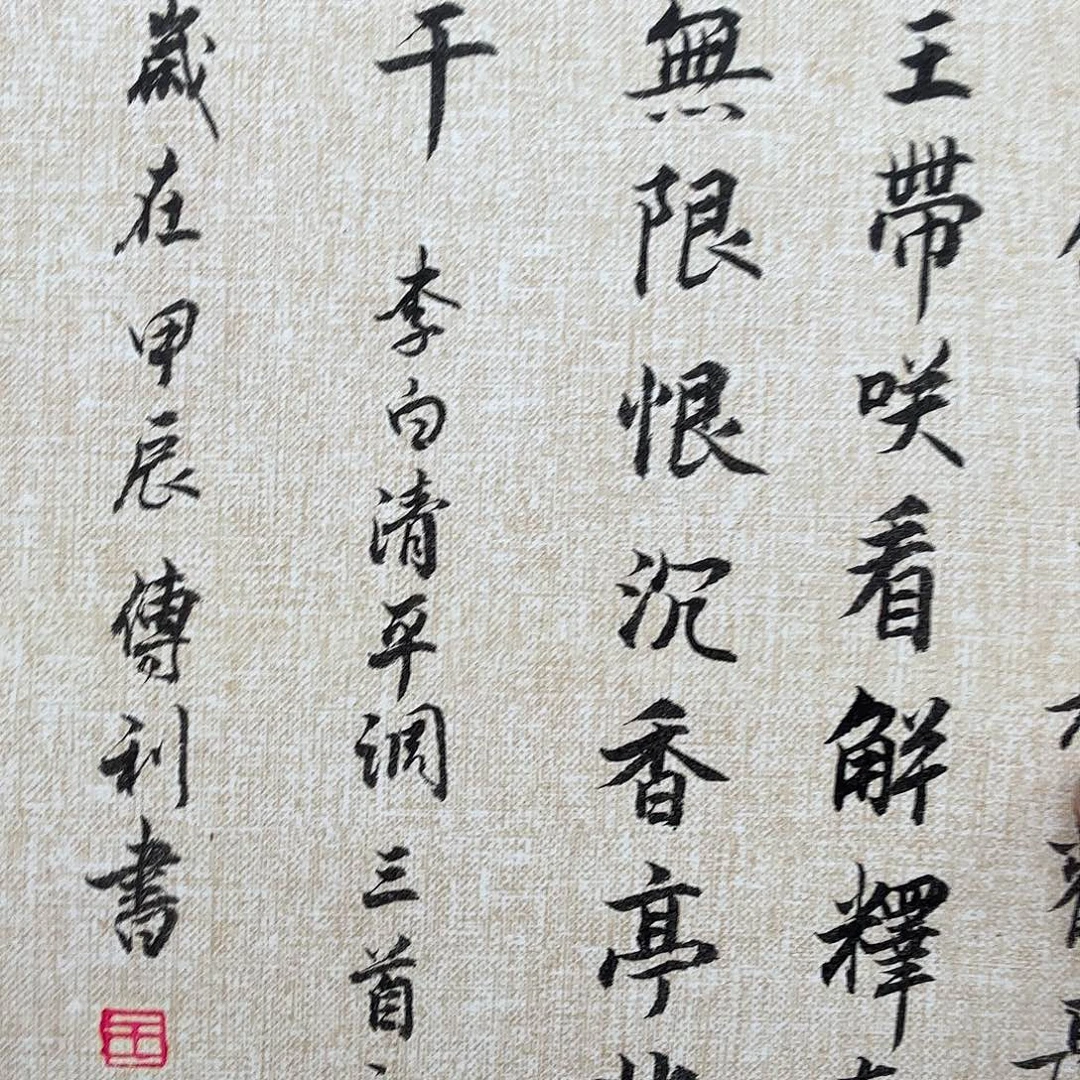 王帶咲看解釋
無限恨沉香亭
干 李白清平調三首
歲在甲辰 傅利書